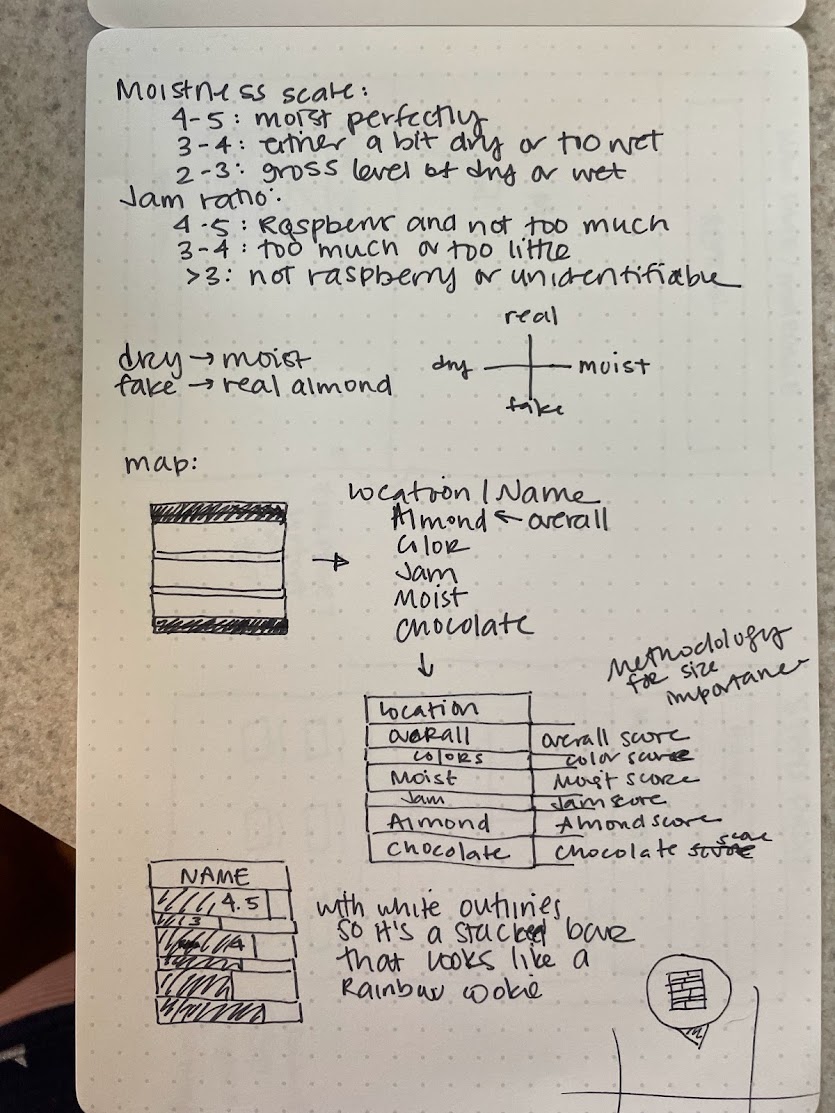 Moistness scale:
4-5: moist perfectly
3-4: either a bit dry or too wet
2-3: gross level of dry or wet
Jam ratio:
4-5: Raspberry and not too much
3-4: too much or too little
>3: not raspberry or unidentifiable
real
dry → moist
dry
moist
fake → real almond
fake
map:
Location/Name
Almond ← overall
Color
Jam
Moist
Chocolate
Methodology
for size
importance
Location
overall
overall score
colors
color score
Moist
Moist score
Jam
Jam score
Almond
Almond score
Chocolate
Chocolate score
NAME
4.5
3
4
with white outlines
so it's a stacked bar
that looks like a
Rainbow cookie